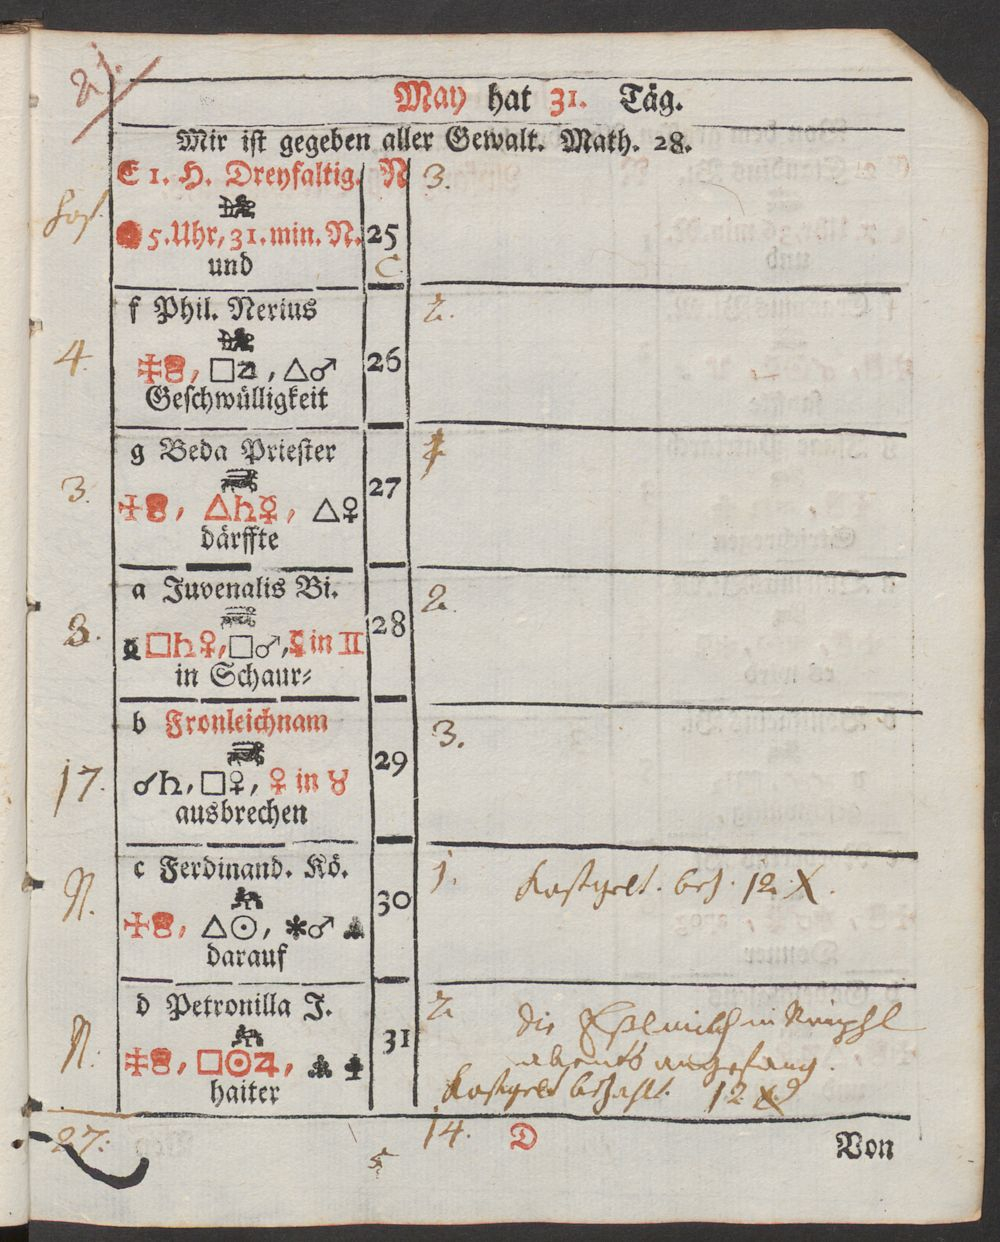 21.
May hat 31. Täg.
Mir ist gegeben aller Gewalt. Math. 28.
E 1. H. Dreyfaltig. N 3.
5.Uhr, 31.min. N. 25
und C
f Phil. Nerius 2.
4. 26
□♃, △♂
Geschwülligkeit
g Beda Priester
3. 27
△♄☿, △♀
därffte
a Juvenalis Bi. 2.
3. 28
□♄♀, □♂, ☿ in II
in Schaur⸗
b Fronleichnam 3.
17. 29
☌♄, □♀, ♀ in ♉
ausbrechen
c Ferdinand. Kö. 1. Kostgelt. bez. 12 X.
N. 30
△☉, ✱♂
darauf
d Petronilla J. 2. die
N. 31
□☉♃, abents angefang.
haiter Kostgelt bezahlt. 12 X
27. 14. D Von
5